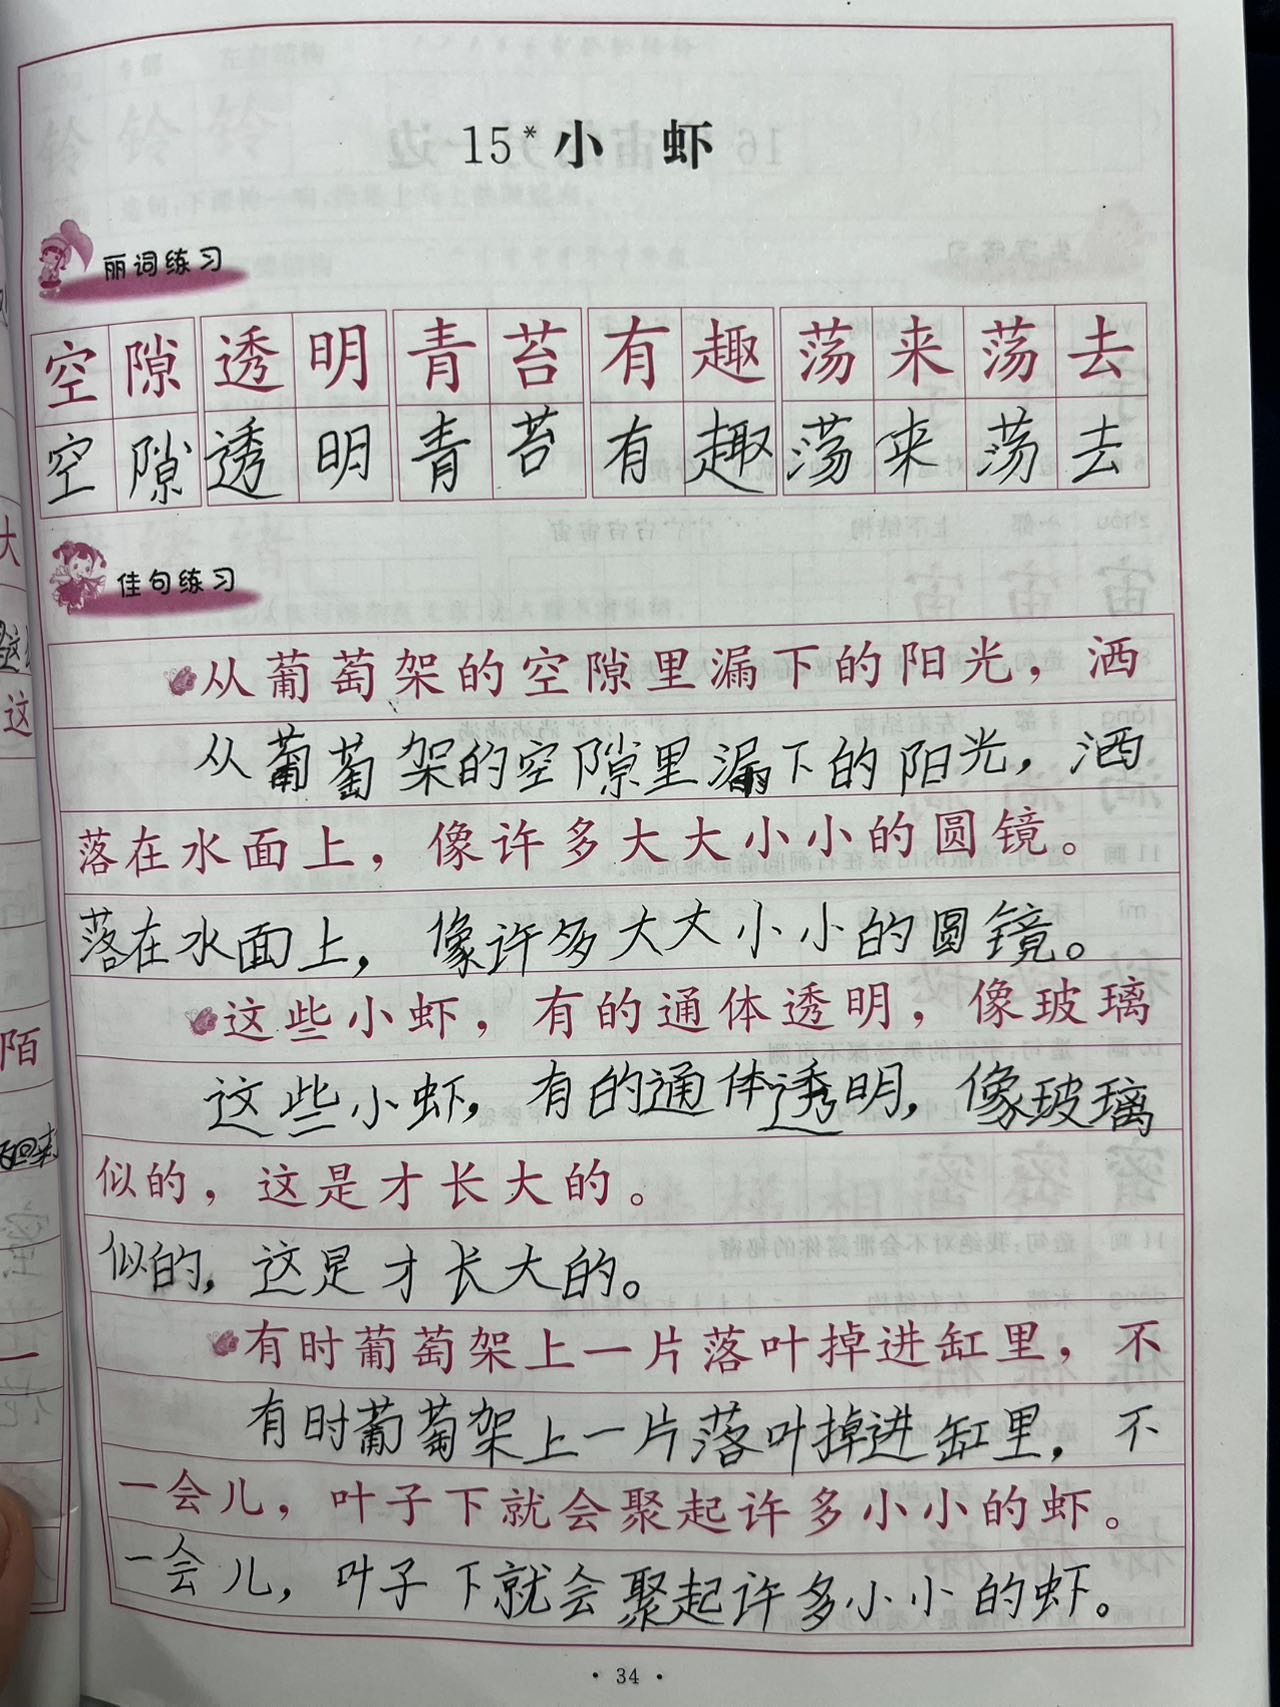 15*小 虾
丽词练习
空隙 透明 青苔 有趣 荡来荡去
空隙 透明 青苔 有趣 荡来荡去
佳句练习
从葡萄架的空隙里漏下的阳光，洒
从葡萄架的空隙里漏下的阳光，洒
落在水面上，像许多大大小小的圆镜。
落在水面上，像许多大大小小的圆镜。
这些小虾，有的通体透明，像玻璃
这些小虾，有的通体透明，像玻璃
似的，这是才长大的。
似的，这是才长大的。
有时葡萄架上一片落叶掉进缸里，不
有时葡萄架上一片落叶掉进缸里，不
一会儿，叶子下就会聚起许多小小的虾。
一会儿，叶子下就会聚起许多小小的虾。
· 34 ·